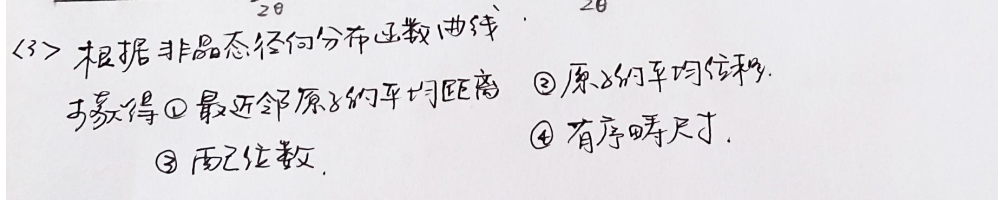 2θ 2θ
<3> 根据非晶态径向分布函数曲线.
可获得①最近邻原子的平均距离 ②原子的平均位移.
③配位数. ④有序畴尺寸.